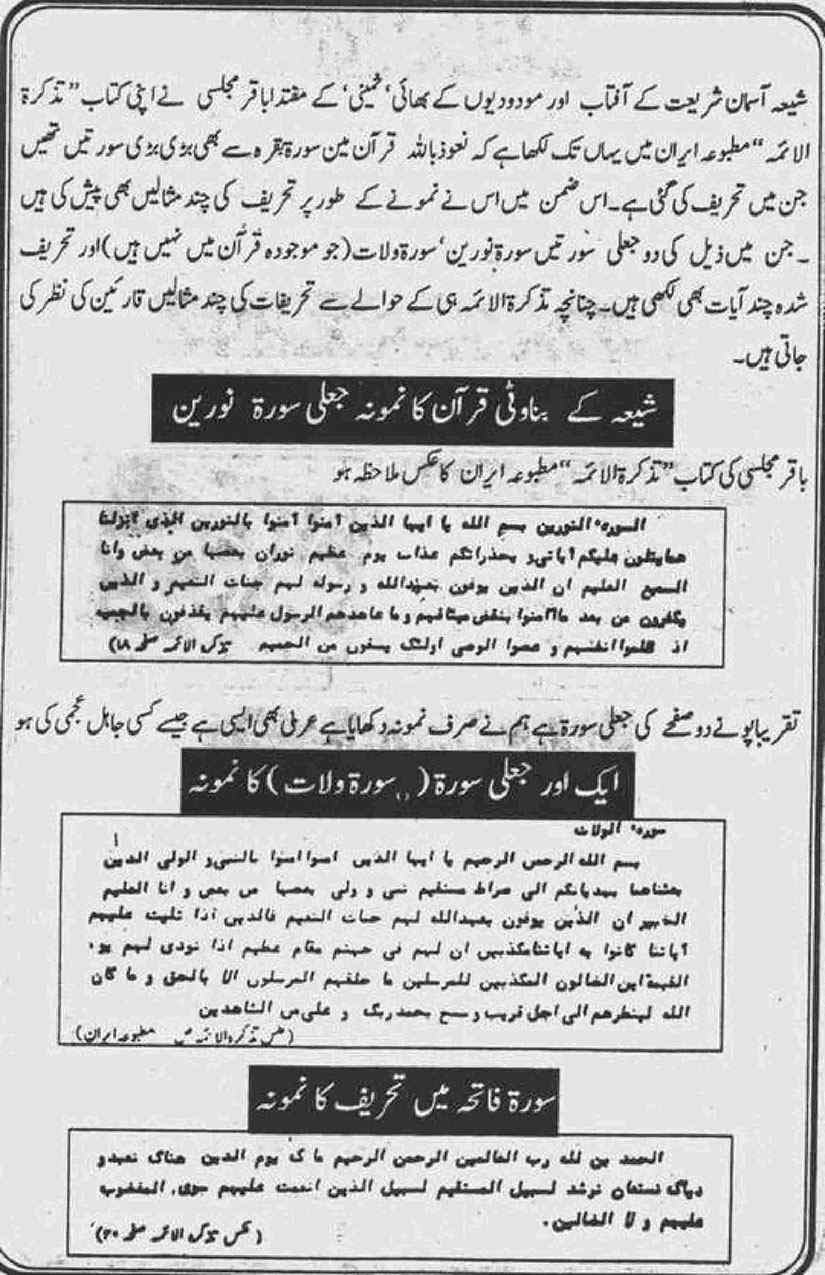 شیعہ آسمان شریعت کے آفتاب اور مودودیوں کے بھائی 'خمینی' کے مقتدا باقر مجلسی نے اپنی کتاب "تذکرۃ
الائمہ" مطبوعہ ایران میں یہاں تک لکھا ہے کہ نعوذ باللہ قرآن مین سورۃ بقرہ سے بھی بڑی بڑی سورتیں تھیں
جن میں تحریف کی گئی ہے۔ اس ضمن میں اس نے نمونے کے طور پر تحریف کی چند مثالیں بھی پیش کی ہیں
۔ جن میں ذیل کی دو جعلی سورتیں سورۃ نورین' سورۃ ولات (جو موجودہ قرآن میں نہیں ہیں) اور تحریف
شدہ چند آیات بھی لکھی ہیں۔ چنانچہ تذکرۃ الائمہ ہی کے حوالے سے تحریفات کی چند مثالیں قارئین کی نظر کی
جاتی ہیں۔
شیعہ کے بناوٹی قرآن کا نمونہ جعلی سورۃ نورین
باقر مجلسی کی کتاب "تذکرۃ الائمہ" مطبوعہ ایران کا عکس ملاحظہ ہو
السورہ النورین بسم الله یا ایها الذین آمنوا آمنوا بالنورین الذی انزلنا
همایتلون علیکم آیاتی و یحذرانکم عذاب یوم عظیم نوران بعضها من بعض وانا
السمیع العلیم ان الذین یوفون بعهدالله و رسوله لهم جنات النعیم و الذین
یکفرون من بعد ماآمنوا بنقض میثاقهم و ما عاهدهم الرسول علیهم یقذفون بالجحیم
اذ ظلموا انفسهم و عصوا الوصی اولئک یسقون من الحمیم تذکرۃ الائمہ صفحہ ۱۸)
تقریباً پونے دو صفحے کی جعلی سورۃ ہے ہم نے صرف نمونہ دکھایا ہے عربی بھی ایسی ہے جیسے کسی جاہل عجمی کی ہو
ایک اور جعلی سورۃ (سورۃ ولات) کا نمونہ
سوره الولات
بسم الله الرحمن الرحیم یا ایها الذین امنوا امنوا بالنبی و الولی الذین
بعثناهما یهدیانکم الی صراط مستقیم نبی و ولی بعضها من بعض و انا العلیم
الخبیر ان الذین یوفون بعهدالله لهم جنات النعیم فالذین اذا تلیت علیهم
آیاتنا کانوا به ایاتنامکذبین ان لهم فی جهنم مقام عظیم اذا نودی لهم یوم
القیمة این الضالون المکذبین للمرسلین ما خلفهم المرسلون الا بالحق و ما کان
الله لینظرهم الی اجل قریب و سبح بحمد ربک و علی من الشاهدین
(عکس تذکرہ الائمہ ص مطبوعہ ایران)
سورۃ فاتحہ میں تحریف کا نمونہ
الحمد بن لله رب العالمین الرحمن الرحیم ما ک یوم الدین هناک نعبد و
دیاک نستعان نرشد لسبیل المستقیم لسبیل الذین انعمت علیهم سوی المغضوب
علیهم و لا الضالین.
(عکس تذکرۃ الائمہ صفحہ ۲۰)